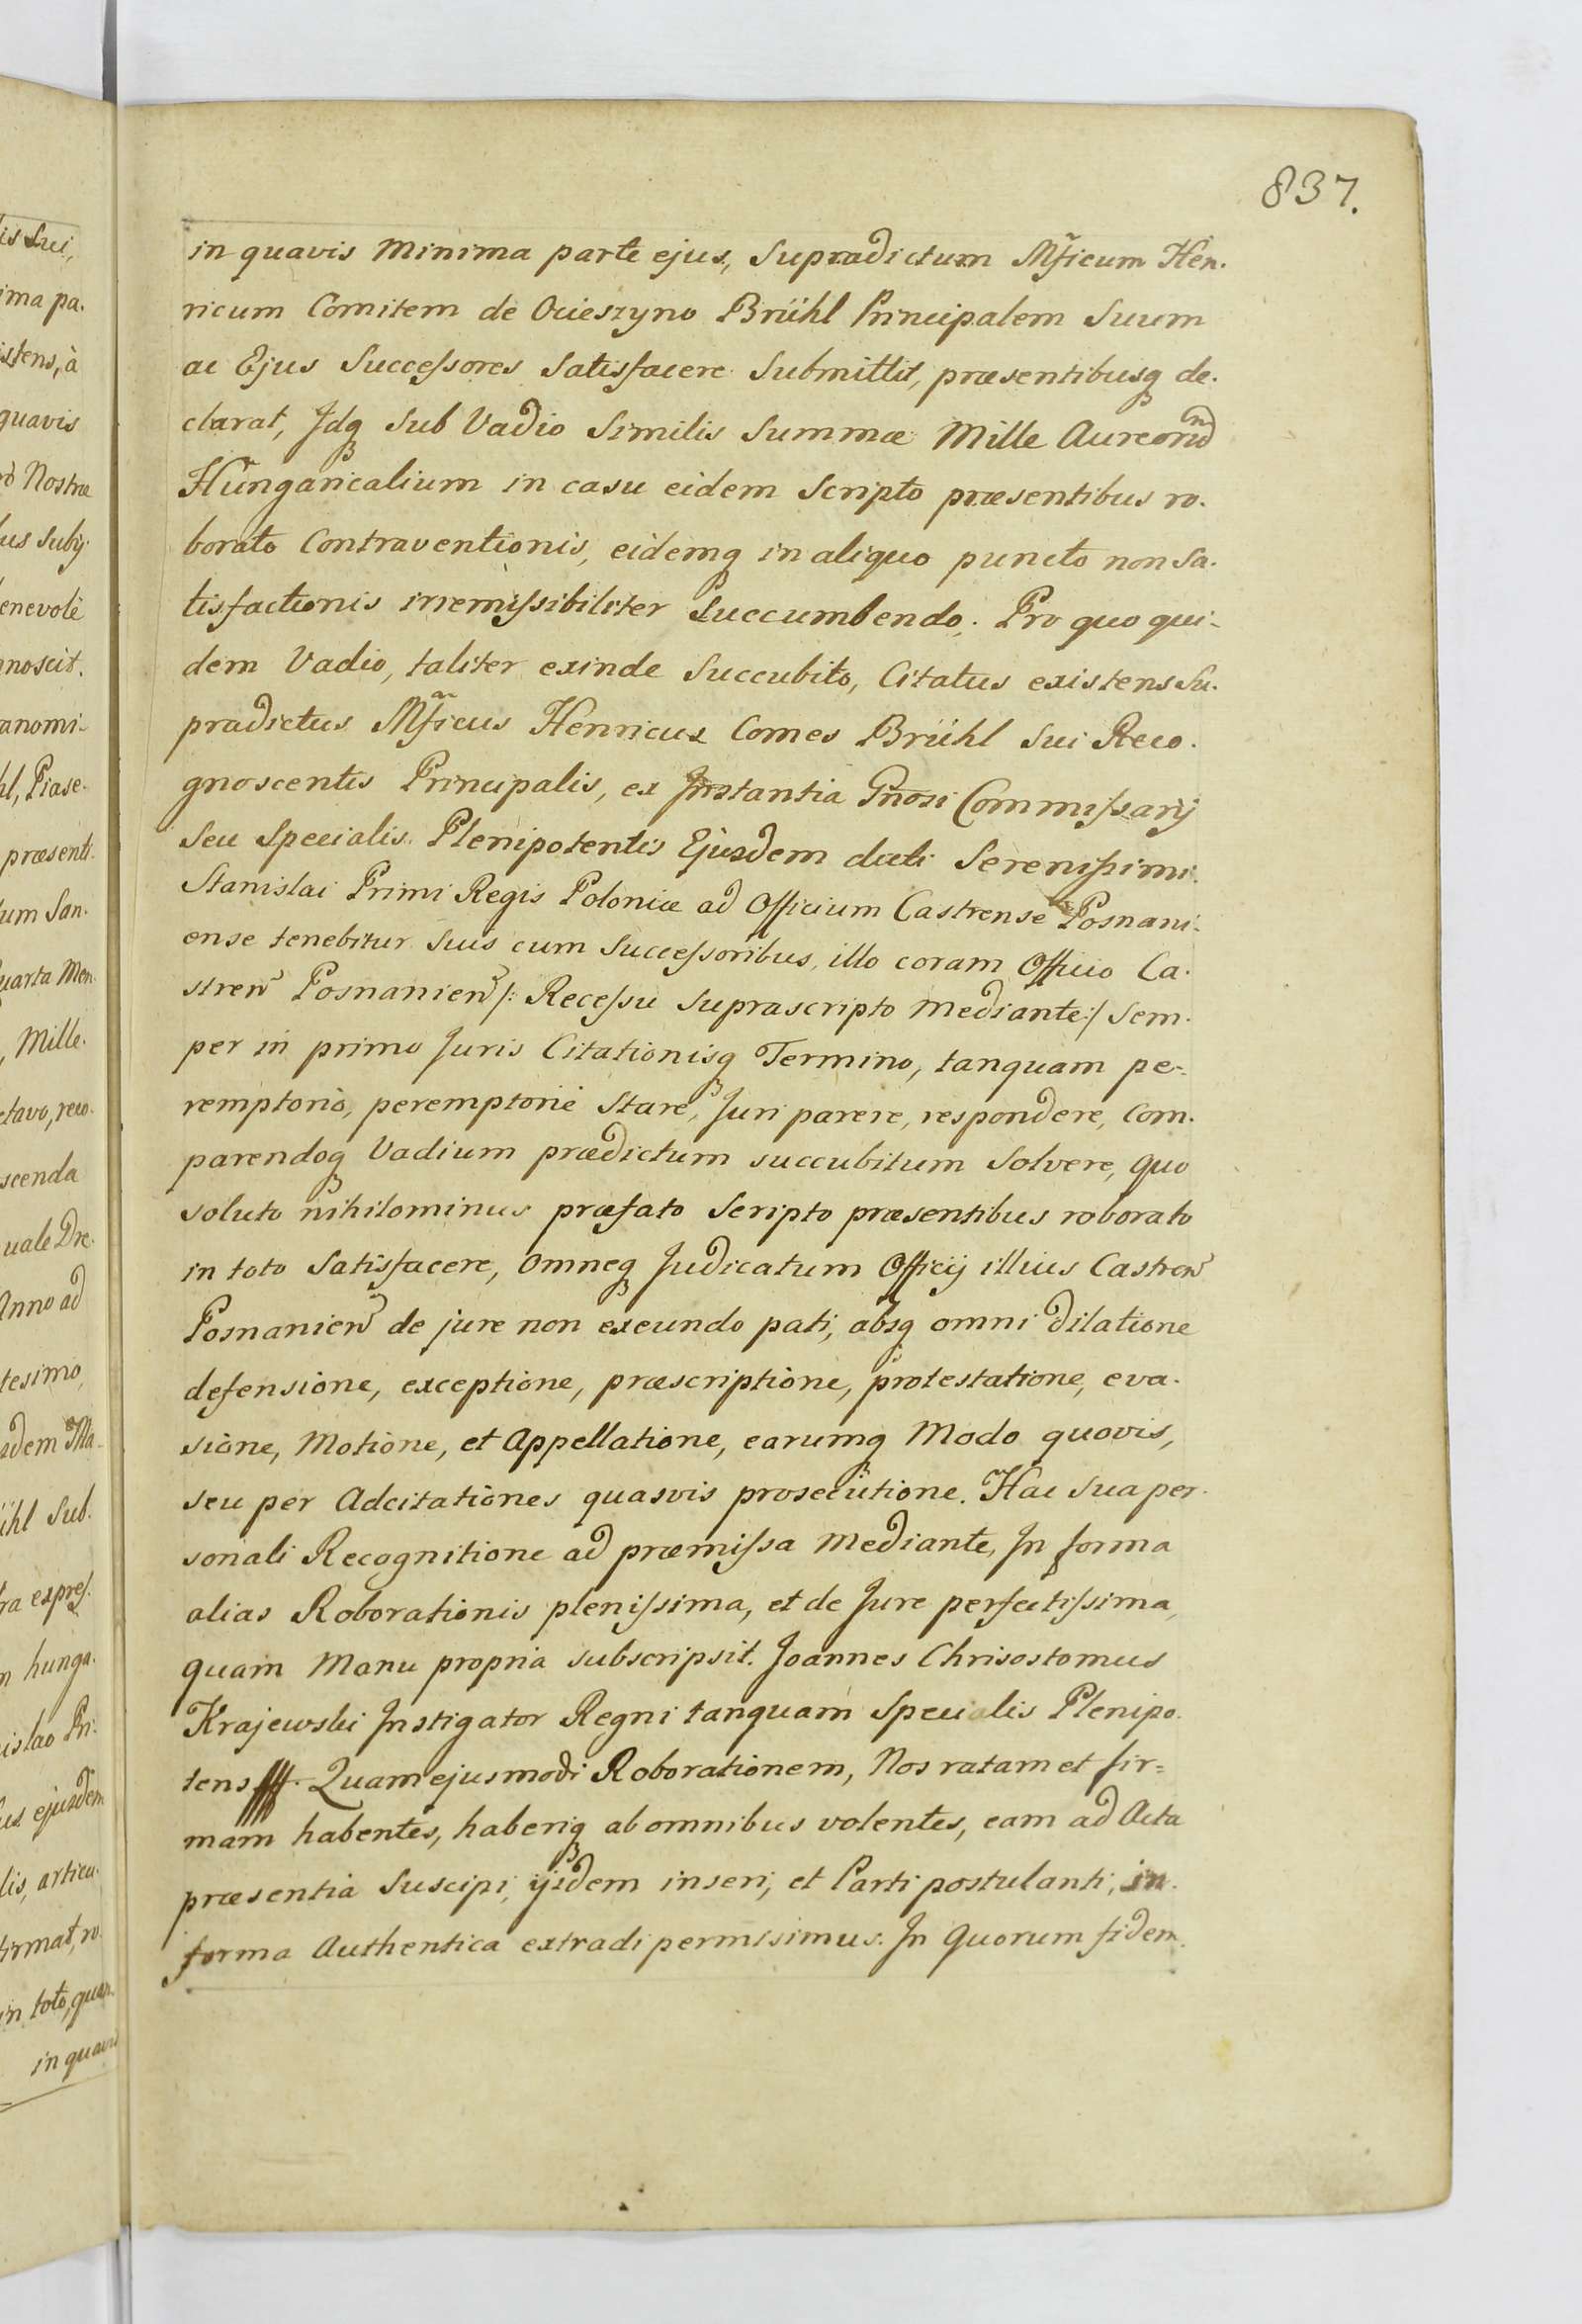 837.
in quavis Minima parte ejus, Supradictum Mficum Hen.
ricum Comitem de Ocieszyno Brühl Principalem Suum
ac Ejus Successores Satisfacere Submittit, præsentibusq de.
clarat, Idq Sub Vadio Similis Summæ Mille Aureorū
Hungaricalium in casu eidem Scripto præsentibus ro.
borato Contraventionis, eidemq in aliquo puncto non Sa.
tisfactionis irremissibiliter Succumbendo. Pro quo qui-
dem Vadio, taliter exinde Succubito, Citatus existens Su.
pradictus Mficus Henricus Comes Brühl Sui Reco.
gnoscentis Principalis, ex Instantia Gnosi Commissarij
Seu Specialis Plenipotentis Ejusdem dicti Serenissimi
Stanislai Primi Regis Poloniæ ad Officium Castrense Posnani.
ense tenebitur Suis cum Successoribus, illo coram Officio Ca.
stren̄ Posnanien̄ /: Recessu Suprascripto mediante :/ Sem.
per in primo Juris Citationisq Termino, tanquam pe-
remptorio, peremptorie Stare, Juri parere, respondere, Com.
parendoq Vadium prædictum succubitum Solvere, quo
soluto nihilominus præfato Scripto præsentibus roborato
in toto Satisfacere, Omneq Judicatum Officij illius Castren̄
Posnanien̄ de jure non exeundo pati, absq omni dilatione
defensione, exceptione, præscriptione, protestatione, eva.
sione, Motione, et Appellatione, earumq Modo quovis,
seu per Adcitationes quasvis prosecutione. Hac Sua per.
sonali Recognitione ad præmissa Mediante, In forma
alias Roborationis plenissima, et de Jure perfectissima,
quam Manu propria subscripsit. Joannes Chrisostomus
Krajewski Instigator Regni tanquam Specialis Plenipo.
tens Quam ejusmodi Roborationem, Nos ratam et fir=
mam habentes, haberiq ab omnibus volentes, eam ad Acta
præsentia Suscipi, ijsdem inseri, et Parti postulanti, in
forma Authentica extradi permisimus. In Quorum fidem.